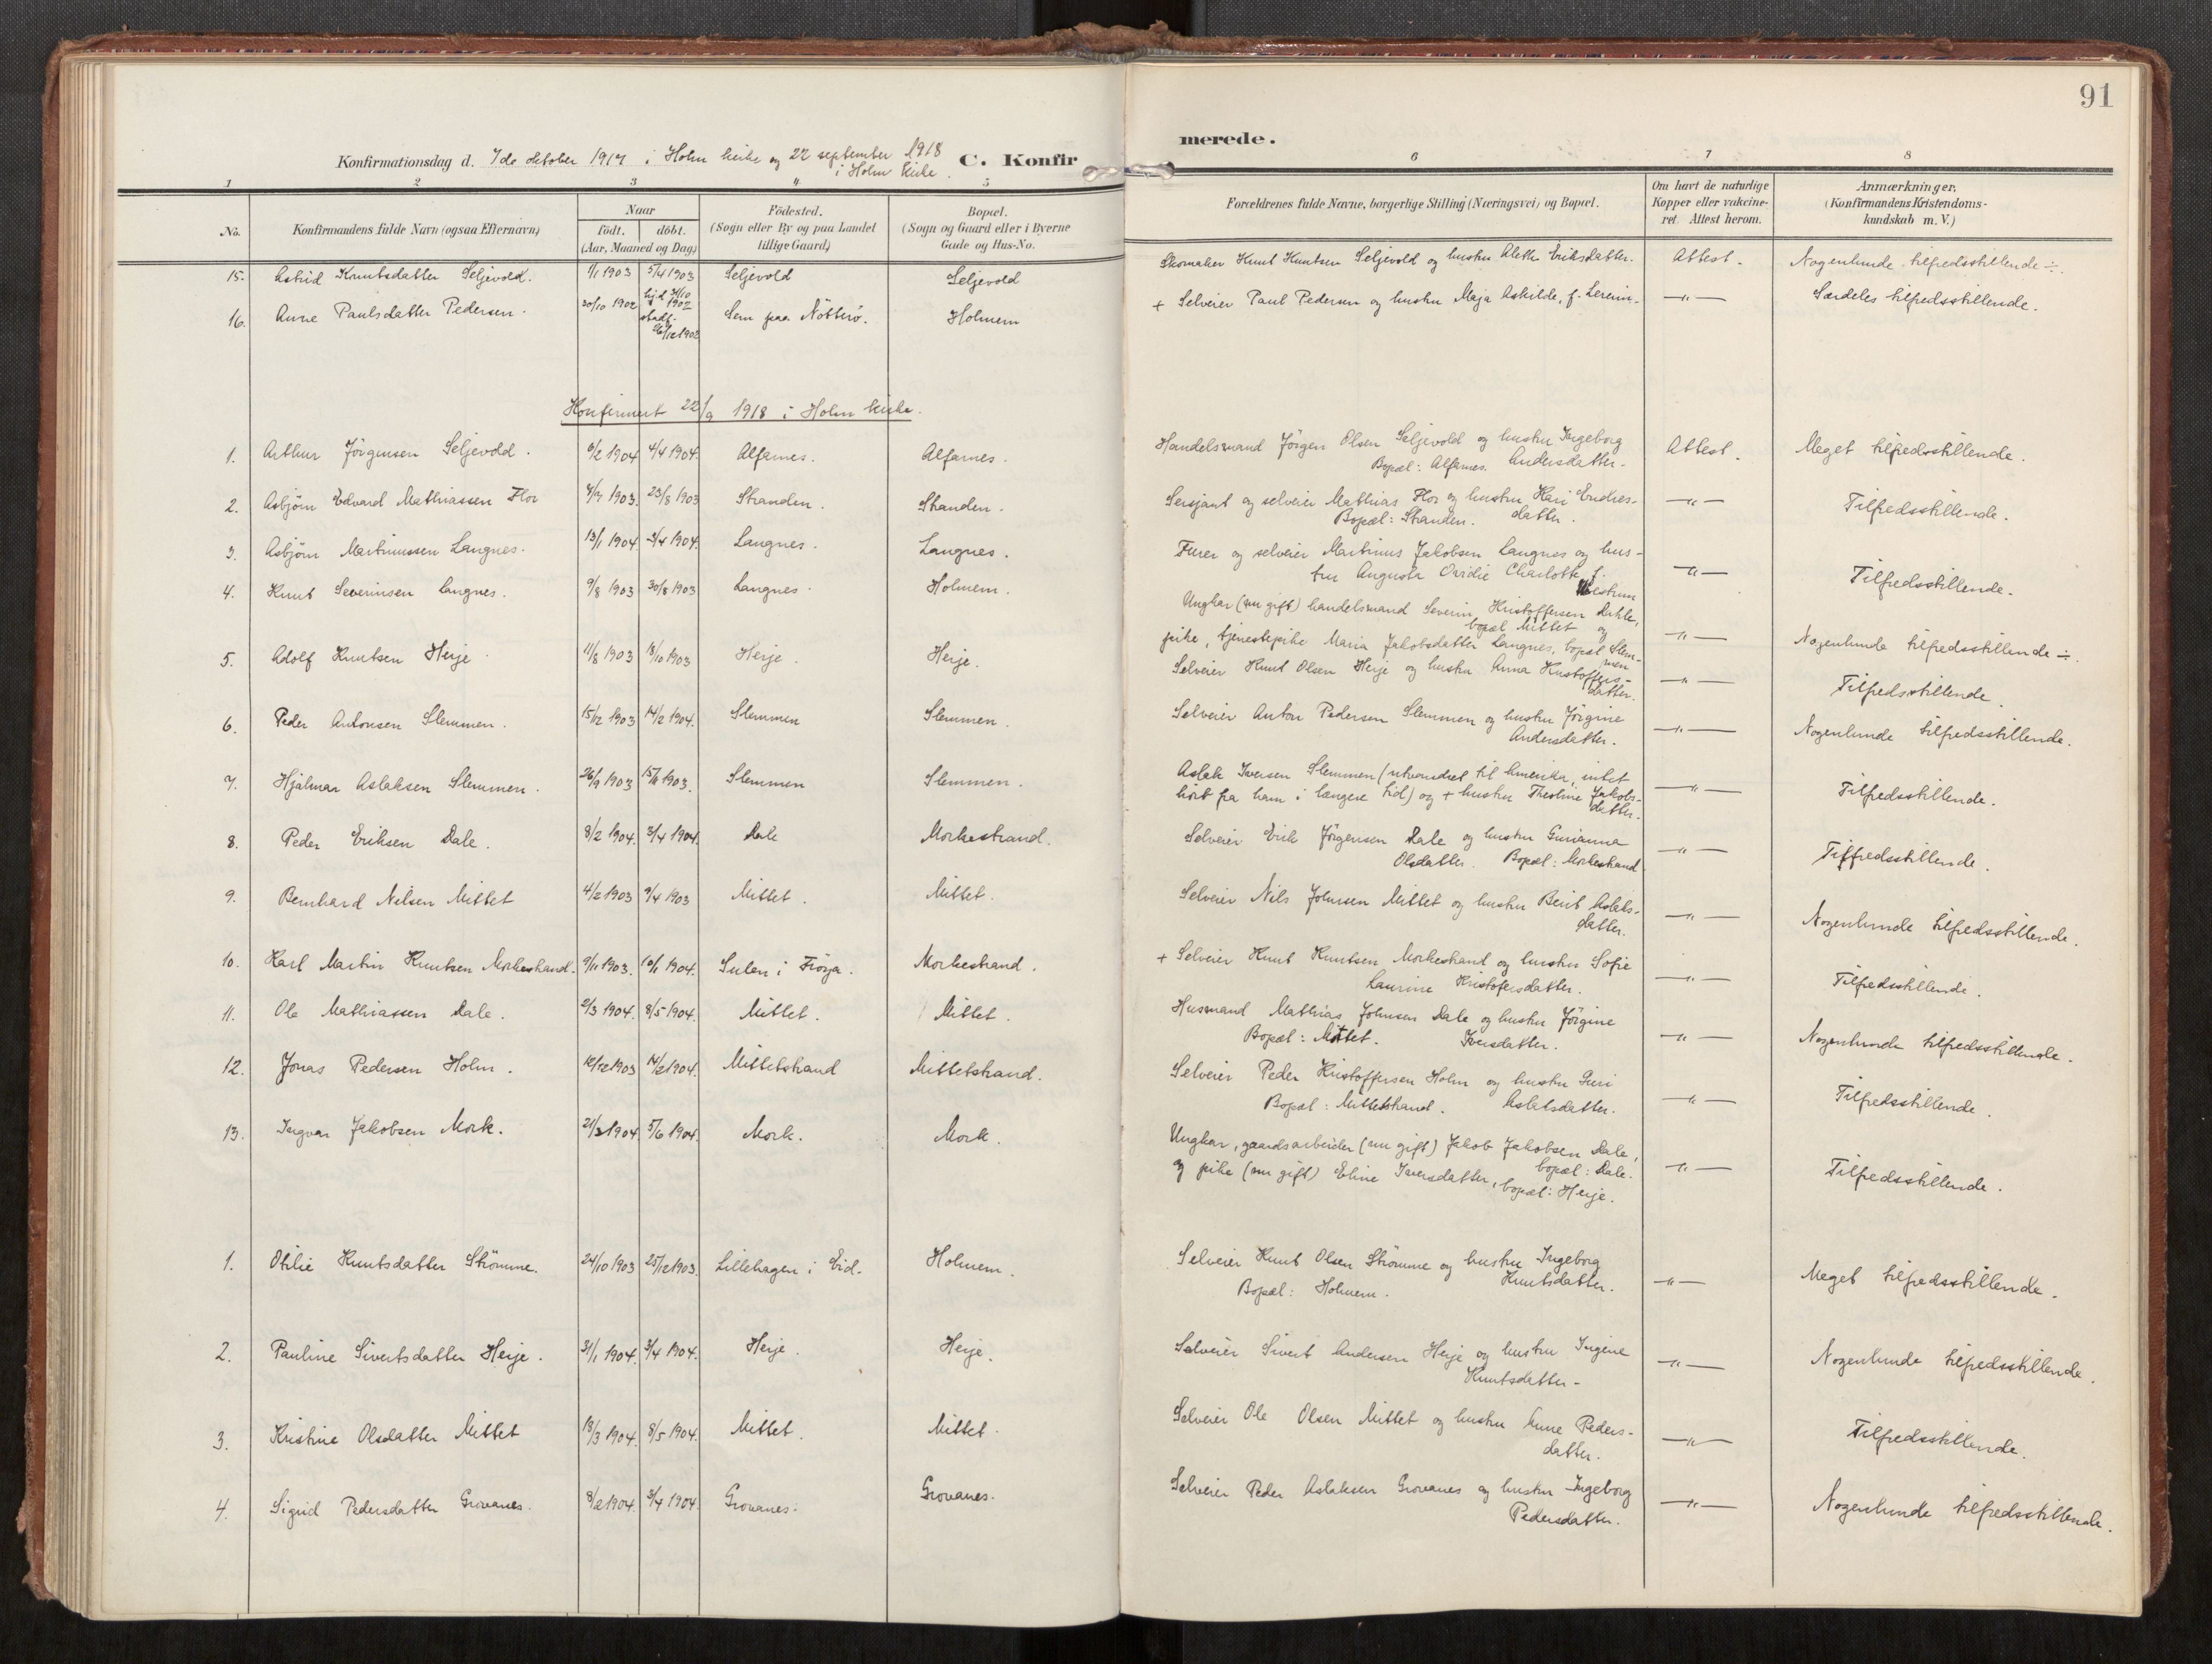 91
Konfirmationsdag d. 7de oktober 1917 i Holm kirke og 22 september 1918
i Holm kirke.
C. Konfirmerede.
1 2 3 4 5 6 7 8
No. Konfirmandens fulde Navn (ogsaa Efternavn) Naar födt. döbt. (Aar, Maaned og Dag) Födested. (Sogn eller By og paa Landet tillige Gaard) Bopæl. (Sogn og Gaard eller i Byerne Gade og Hus-No. Forældrenes fulde Navne, borgerlige Stilling (Næringsvei) og Bopæl. Om havt de naturlige Kopper eller vakcineret. Attest herom. Anmærkninger. (Konfirmandens Kristendomskundskab m. V.)
15. Astrid Knutsdatter Seljevold. 1/1 1903 5/4 1903 Seljevold Seljevold Skomaker Knut Knutsen Seljevold og hustru Alette Eriksdatter. Attest. Nogenlunde tilfredsstillende ÷.
16. Anne Paulsdatter Pedersen. 30/10 1902 hjd 31/10 1902 stadf. 26/12 1902 Sem paa Nötterö. Holmem + Selveier Paul Pedersen og hustru Maja Askilde, f. —"— Særdeles tilfredsstillende.
Konfirmert 22/9 1918 i Holm kirke.
1. Arthur Jörgensen Seljevold. 6/2 1904 4/4 1904. Alfarnes. Alfarnes. Handelsmand Jörgen Olsen Seljevold og hustru Ingeborg
Bopæl: Alfarnes. Andersdatter. Attest. Meget tilfredsstillende.
2. Asbjörn Edvard Mathiassen Flor 7/7 1903. 23/8 1903 Stranden. Stranden. Sersjant og selveier Mathias Flor og hustru Kari Endres-
Bopæl: Stranden. datter. —"— Tilfredsstillende.
3. Asbjörn Martinussen Langnes. 13/1 1904. 3/4 1904. Langnes. Langnes. Furer og selveier Martinus Jakobsen Langnes og hus-
tru Augusta Ovidie Charlotte f.
Westrum —"— Tilfredsstillende.
4. Knut Severinsen Langnes. 9/8 1903 30/8 1903 Langnes. Holmem. Ungkar (nu gift) handelsmand Severin Kristoffersen Dahle,
bopæl Mittet og
pike, tjenestepike Maria Jakobsdatter Langnes, bopæl Slem-
men —"— Nogenlunde tilfredsstillende ÷.
5. Adolf Knutsen Herje. 11/8 1903 18/10 1903 Herje. Herje. Selveier Knut Olsen Herje og hustru Anna Kristoffers-
datter. —"— Tilfredsstillende.
6. Peder Antonsen Slemmen. 15/12 1903 14/2 1904. Slemmen Slemmen. Selveier Anton Pedersen Slemmen og hustru Jörgine
Andersdatter. —"— Nogenlunde tilfredsstillende.
7. Hjalmar Aslaksen Slemmen. 26/9 1903 15/11 1903. Slemmen Slemmen. Aslak Iversen Slemmen (utvandret til Amerika, intet
hört fra ham i længere tid) og + hustru Theoline Jakobs-
datter. —"— Tilfredsstillende.
8. Peder Eriksen Dale. 8/2 1904. 3/4 1904. Dale Morkestrand. Selveier Erik Jörgensen Dale og hustru Gurianna
Olsdatter. Bopæl: Morkestrand —"— Tilfredsstillende.
9. Bernhard Nilsen Mittet 4/2 1903 9/4 1903 Mittet. Mittet. Selveier Nils Johnsen Mittet og hustru Berit Aslaks-
datter. —"— Nogenlunde tilfredsstillende.
10. Karl Martin Knutsen Morkestrand. 9/11 1903. 10/1 1904. Sulen i Fröya. Morkestrand. + Selveier Knut Knutsen Morkestrand og hustru Sofie
Laurine Kristofersdatter. —"— Tilfredsstillende.
11. Ole Mathiassen Dale. 2/3 1904. 8/5 1904. Mittet. Mittet. Husmand Mathias Johnsen Dale og hustru Jörgine
Bopæl: Mittet. Iversdatter. —"— Nogenlunde tilfredsstillende.
12. Jonas Pedersen Holm. 12/12 1903 14/2 1904. Mittetstrand Mittetstrand. Selveier Peder Kristoffersen Holm og hustru Guri
Bopæl: Mittetstrand. Aslaksdatter. —"— Tilfredsstillende.
13. Ingvar Jakobsen Mork. 21/3 1904. 5/6 1904. Mork. Mork. Ungkar, gaardsarbeider (nu gift) Jakob Jakobsen Dale,
bopæl: Dale.
og pike (nu gift) Eline Iversdatter, bopæl: Herje. —"— Tilfredsstillende.
1. Otilie Knutsdatter Strömme. 24/10 1903 25/12 1903. Lillehagen i Eid. Holmem. Selveier Knut Olsen Strömme og hustru Ingeborg
Bopæl: Holmem. Knutsdatter. —"— Meget tilfredsstillende.
2. Pauline Sivertsdatter Herje. 31/1 1904. 3/4 1904. Herje. Herje. Selveier Sivert Andersen Herje og hustru Ingine
Knutsdatter. —"— Nogenlunde tilfredsstillende.
3. Kristine Olsdatter Mittet 18/3 1904. 8/5 1904. Mittet. Mittet. Selveier Ole Olsen Mittet og hustru Anne Peders-
datter. —"— Tilfredsstillende.
4. Sigrid Pedersdatter Grovanes. 8/2 1904. 3/4 1904. Grovanes. Grovanes. Selveier Peder Aslaksen Grovanes og hustru Ingeborg
Pedersdatter. —"— Nogenlunde tilfredsstillende.